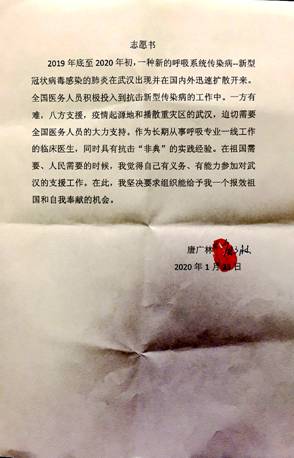 志愿书
2019 年底至 2020 年初，一种新的呼吸系统传染病--新型
冠状病毒感染的肺炎在武汉出现并在国内外迅速扩散开来。
全国医务人员积极投入到抗击新型传染病的工作中。一方有
难，八方支援，疫情起源地和播散重灾区的武汉，迫切需要
全国医务人员的大力支持。作为长期从事呼吸专业一线工作
的临床医生，同时具有抗击“非典”的实践经验。在祖国需
要、人民需要的时候，我觉得自己有义务、有能力参加对武
汉的支援工作。在此，我坚决要求组织能给予我一个报效祖
国和自我奉献的机会。
唐广林
2020 年 1 月 日